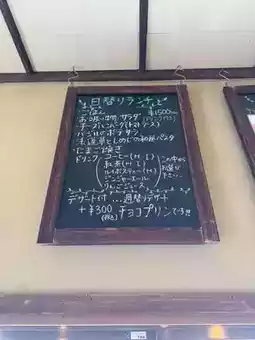 日替りランチ
ごはん ¥1500
お吸い物 サラダ
チーズハンバーグ(トマトソース)
バジルポテサラ
法蓮草としめじの和風パスタ
たまご焼き
ドリンク コーヒー(H I) この中から
紅茶(H I)
ルイボスティー(H I)
ジンジャーエール
りんごジュース
デザート付 …週替りデザート
+¥300 (税込) チョコプリンです!!